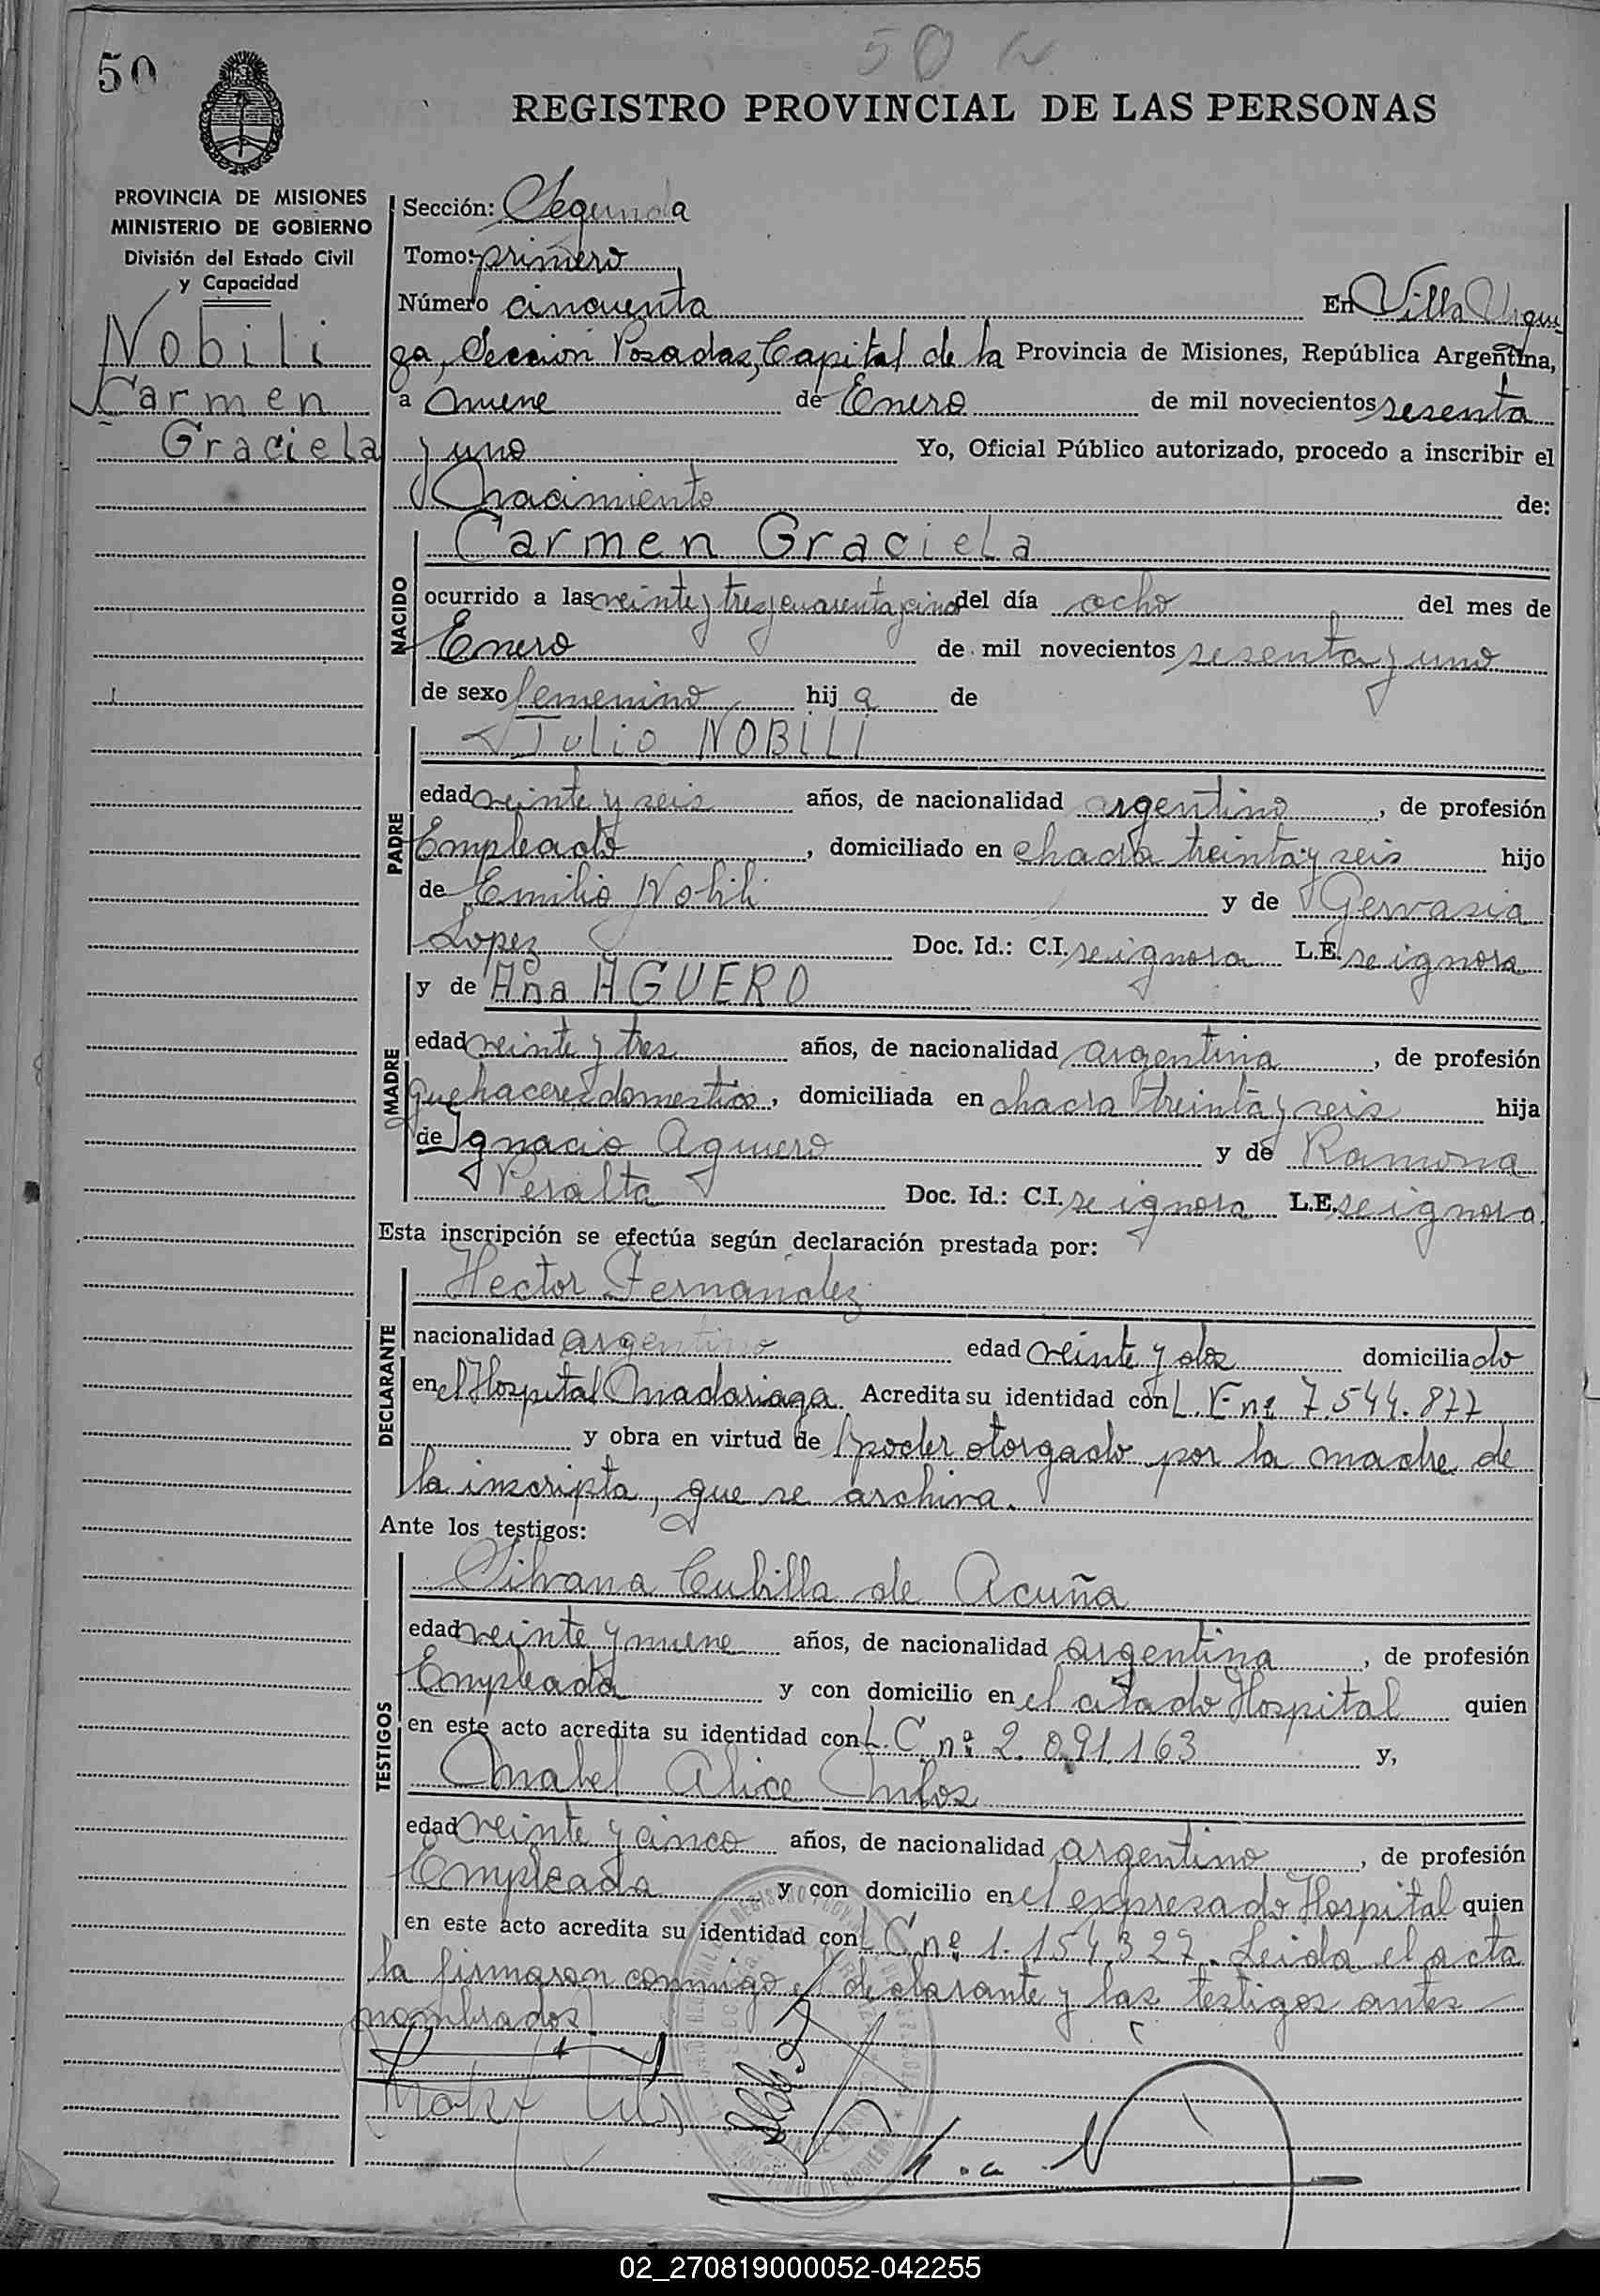 50
50
REGISTRO PROVINCIAL DE LAS PERSONAS
PROVINCIA DE MISIONES
MINISTERIO DE GOBIERNO
División del Estado Civil
y Capacidad
Nobili
Carmen
Graciela
Sección: Segunda
Tomo: primero
Número cincuenta En Villa Urqui
za, Sección Posadas, Capital de la Provincia de Misiones, República Argentina,
a nueve de Enero de mil novecientos sesenta
y uno Yo, Oficial Público autorizado, procedo a inscribir el
nacimiento de:
NACIDO
Carmen Graciela
ocurrido a las veinte y tres y cuarenta y cinco del día ocho del mes de
Enero de mil novecientos sesenta y uno
de sexo femenino hij a de
PADRE
Julio NOBILI
edad veinte y seis años, de nacionalidad argentino, de profesión
Empleado, domiciliado en chacra treinta y seis hijo
de Emilio Nobili y de Gervasia
Lopez Doc. Id.: C.I. se ignora L.E. se ignora
MADRE
y de Ana AGUERO
edad veinte y tres años, de nacionalidad argentina, de profesión
quehaceres domesticos, domiciliada en chacra treinta y seis hija
de Ignacio Aguero y de Ramona
Peralta Doc. Id.: C.I. se ignora L.E. se ignora
Esta inscripción se efectúa según declaración prestada por:
DECLARANTE
Hector Fernandez
nacionalidad argentino edad veinte y dos domiciliado
en el Hospital Madariaga. Acredita su identidad con L.E nº 7.544.877
y obra en virtud de poder otorgado por la madre de
la inscripta, que se archiva.
Ante los testigos:
TESTIGOS
Silvana Cubilla de Acuña
edad veinte y nueve años, de nacionalidad argentina, de profesión
Empleada y con domicilio en el citado Hospital quien
en este acto acredita su identidad con L.C nº 2.091.163 y,
Mabel Alice
edad veinte y cinco años, de nacionalidad argentino, de profesión
Empleada y con domicilio en el expresado Hospital quien
en este acto acredita su identidad con L C. nº 1.154.327. Leida el acta
la firmaron conmigo el declarante y las testigos antes
nombrados.
02_270819000052-042255